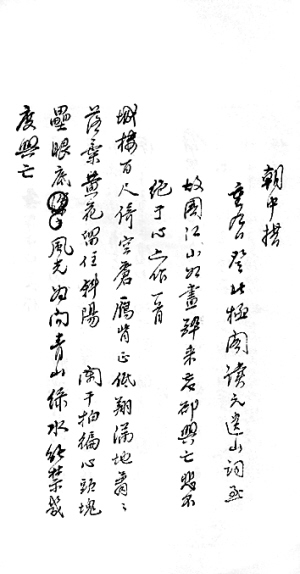 朝中措
重九登北極閣讀元遺山詞至
故國江山如畫醉來忘卻興亡悲不
絕于心亦作一首
城樓百尺倚空蒼雁背正低翔滿地蕭〻
落葉黃花留住斜陽　闌干拍徧心頭塊
壘眼底風光為問青山綠水能禁幾
度興亡